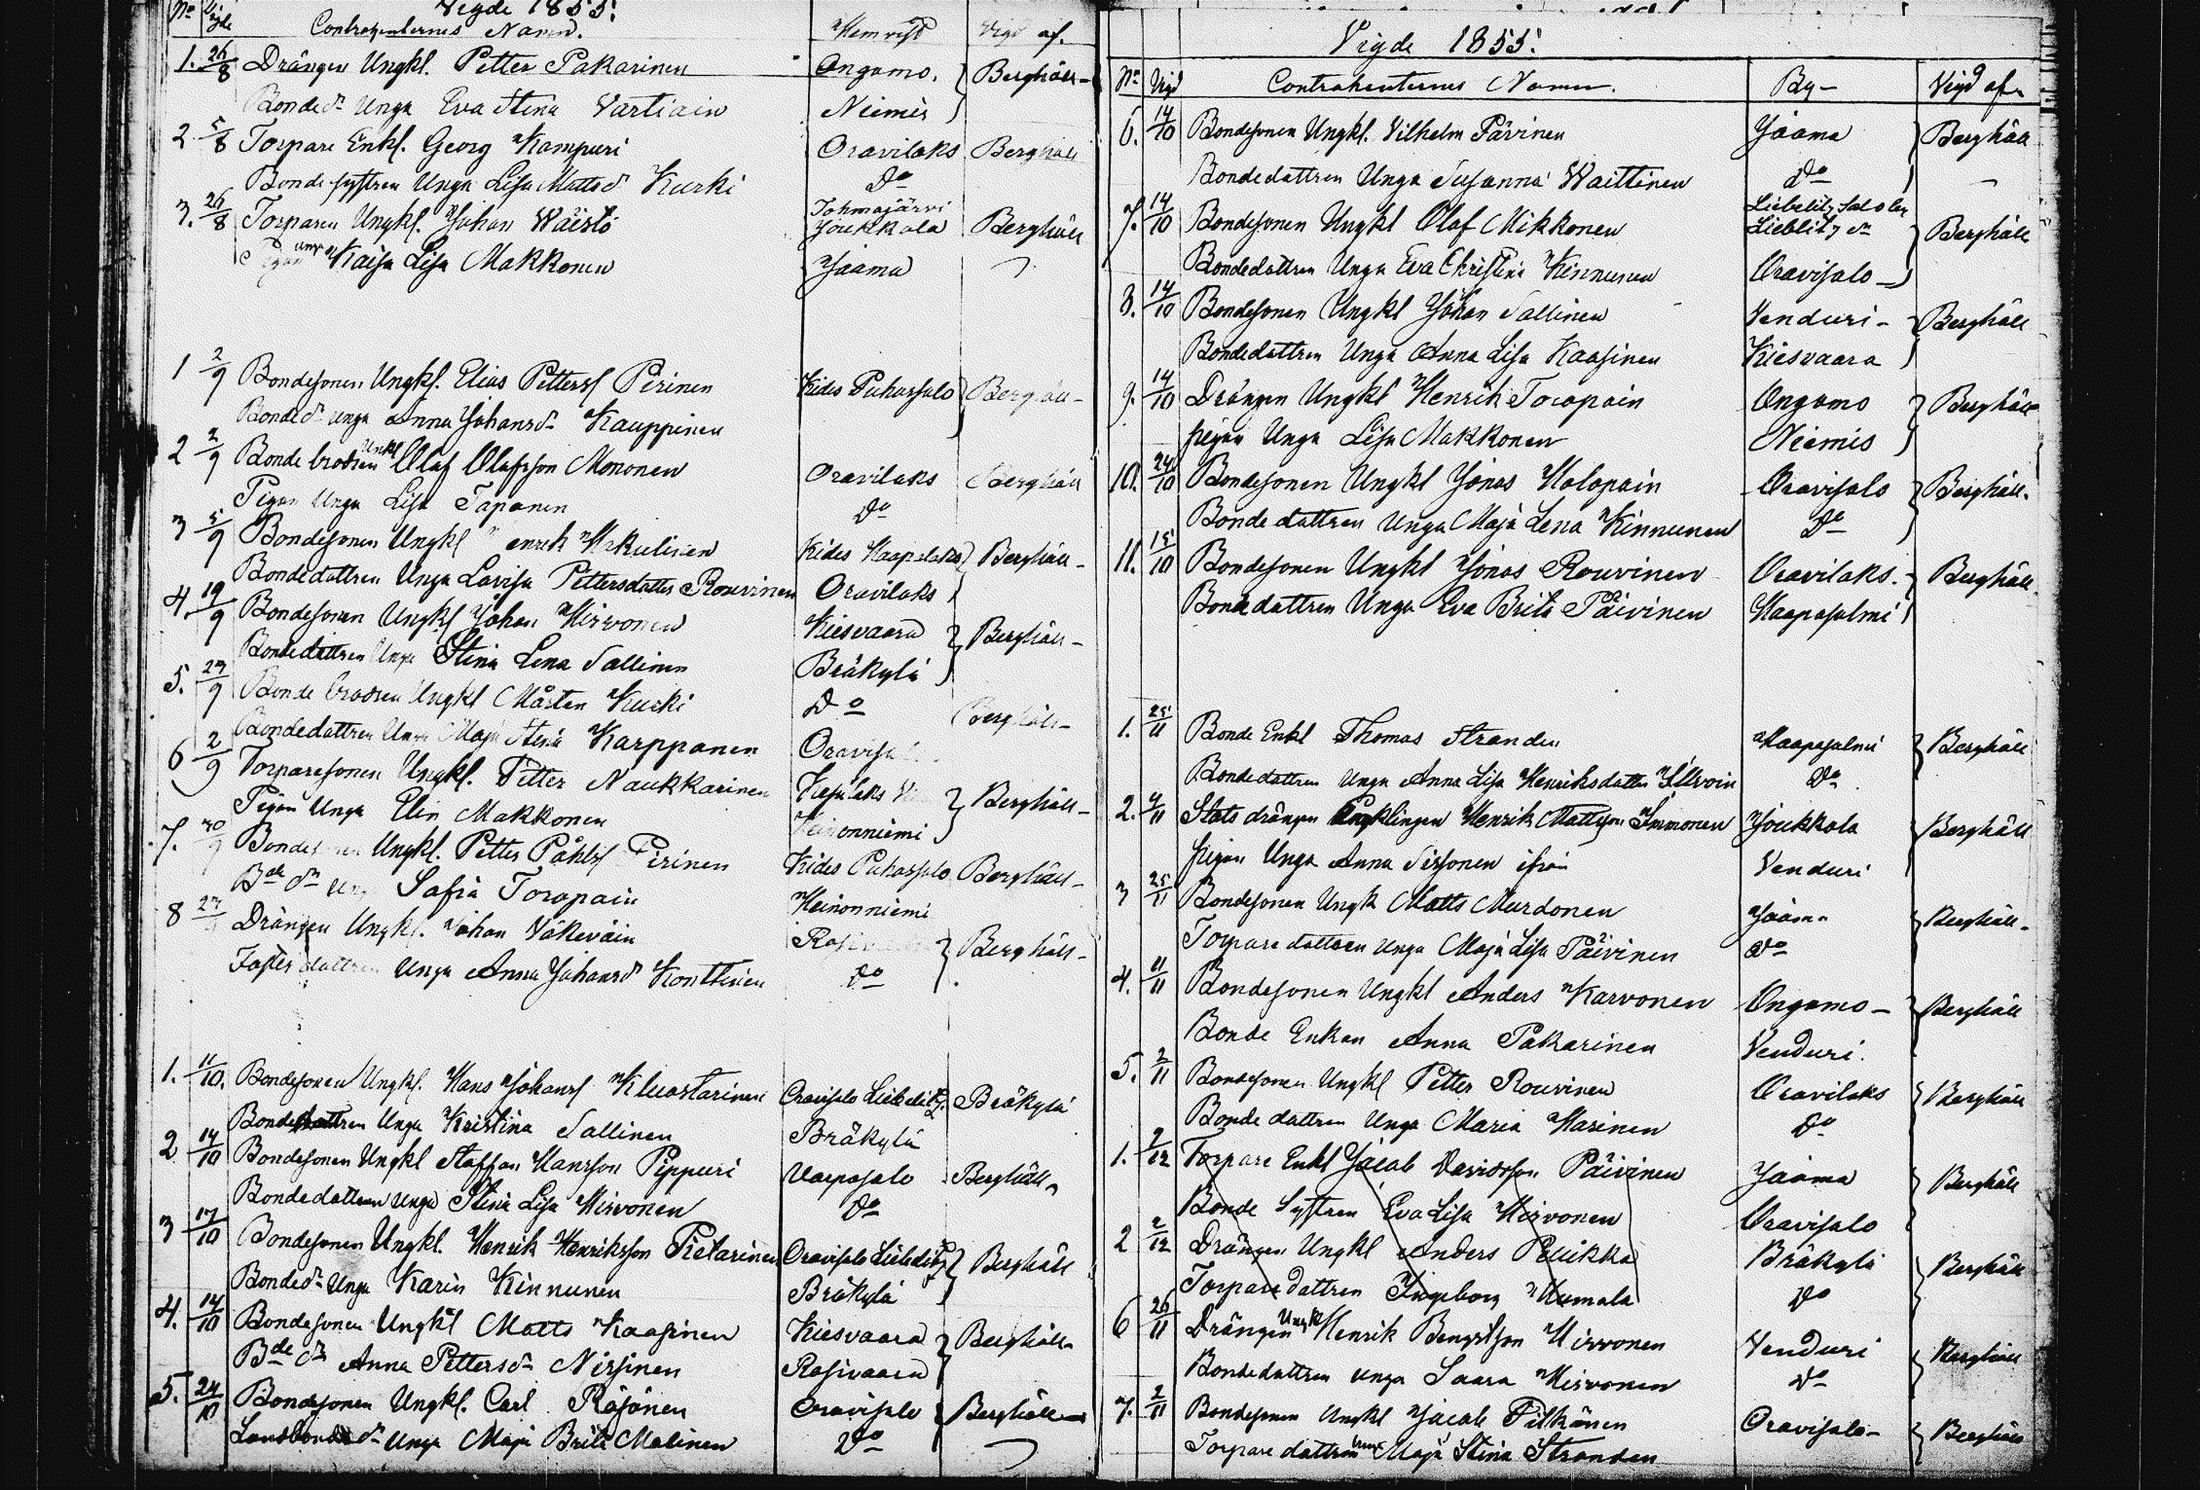 Vigde 1855.
No Vigde Contrahenternes Namn. Hemvist Vigd af.
1. 26/8 Drängen Ungkl. Petter Pakarinen Ongamo, Berghäll-
Bonde dr Unga Eva Stina Vartiain Niemis
2 5/8 Torpare Enkl. Georg Kampuri Oravilaks Berghäll
Bonde systren Unga Lisa Mattsdr Kurki Do
3. 26/8 Torparen Ungkl. Johan Wäistö Tohmajärvi Joukkola Berghäll
Pigan unga Kaisa Lisa Makkonen Jaama
1 2/9 Bondesonen Ungkl. Elias Petterss Pirinen Kides Puhossalo Berghäll-
Bonde dr unga Anna Johansdr Kauppinen
2 2/9 Bonde brodren Unkl Olof Olofsson Mononen Oravilaks Berghäll
Pigan Unga Lisa Tapanen Do
3 5/9 Bondesonen Ungkl Henrik Hakulinen Kides Haapalaks Berghäll-
Bondedottren Unga Lovisa Pettersdotter Rouvinen Oravilaks
4. 19/9 Bondesonen Ungkl Johan Hirvonen Kiesvaara Berghäll-
Bondedottren Unga Stina Lena Sallinen Bräkylä
5. 23/9 Bonde brodren Ungkl Mårten Kurki Do Berghäll-
Bondedottren Unga Maja Stina Karppanen Oravisa
6 2/9 Torparesonen Ungkl. Petter Naukkarinen Berghäll-
Pigan Unga Elin Makkonen Heinonniemi
7. 30/9 Bondesonen Ungkl. Petter Påhlss Pirinen Kides Puhossalo Berghäll-
Bde dr Unga Sofia Toropain Heinonniemi
8 Drängen Ungkl. Johan Väkeväin Berghäll-
Foster dottren Unga Anna Johansdr Konttinen Do
1. 11/10. Bondesonen Ungkl. Hans Johanss Kluostarinen Oravisalo Liebelitz. Bräkylä
Bondedottren Unga Kristina Sallinen Bräkylä
2 14/10 Bondesonen Ungkl Staffan Hansson Pippuri Varpasalo Berghäll
Bondedottren Unga Stina Lisa Hirvonen Do
3 17/10 Bondesonen Ungkl. Henrik Henriksson Pietarinen Oravisalo Liebelitz Berghäll
Bonde dr Unga Karin Kinnunen Bräkylä
4. 14/10 Bondesonen Ungkl Matts Kaasinen Kiesvaara Berghäll-
Bde dr Anna Pettersdr Nissinen Rasivaara
5. 24/10 Bondesonen Ungkl. Carl Räsänen Oravisalo Berghäll-
Landbonde dr Unga Maja Brita Malinen Do
Vigde 1855.
No Vigd Contrahenternes Namn. By- Vigd af
6. 14/10 Bondesonen Ungkl. Vilhelm Pävinen Jaama Berghäll
Bondedottren Unga Susanna Waittinen Do
7. 14/10 Bondesonen Ungkl Olof Mikkonen Lieblitz Berghäll
Bondedottren Unga Eva Christina Kinnunen Oravisalo-
8. 14/10 Bondesonen Ungkl Johan Sallinen Venduri- Berghäll
Bondedottren Unga Anna Lisa Kaasinen Kiesvaara
9. 14/10 Drängen Ungkl Henrik Toropain Ongamo Berghäll
pigan Unga Lisa Makkonen Niemis
10. 24/10 Bondesonen Ungkl Jonas Holopain Oravisalo Berghäll.
Bondedottren Unga Maja Lena Kinnunen Do
11. 15/10 Bondesonen Ungkl Jonas Rouvinen Oravilaks. Berghäll.
Bondedottren Unga Eva Brita Päivinen Haapasalmi
1. 25/11 Bonde Enkl Thomas Stranden Haapasalmi Berghäll
Bondedottren Unga Anna Lisa Henriksdotter Ilvoin Do
2. 9/11 Stats drängen Ungklingen Henrik Mattsson Immonen Joukkola Berghäll
pigan Unga Anna Sissonen ifrån Venduri
3 25/11 Bondesonen Ungk Matts Murdonen Jaama Berghäll-
Torpare dottren Unga Maja Lisa Päivinen Do
4. 11/11 Bondesonen Ungkl Anders Karvonen Ongamo- Berghäll
Bonde Enkan Anna Pakarinen Venduri.
5. 2/11 Bondesonen Ungkl Petter Rouvinen Oravilaks Berghäll
Bonde dottren Unga Maria Harinen Do
1. 9/12 Torpare Enkl Jacob Davidsson Päivinen Jaama Berghäll
Bonde Systren Eva Lisa Hirvonen Oravisalo
2 2/12 Drängen Ungkl Anders Puikka Bräkylä Berghäll
Torpare dottren Ingeborg Humala Do
6 26/11 Drängen Ungkl Henrik Bengtsson Hirvonen Venduri Berghäll
Bondedottren unga Saara Hirvonen Do
7. 2/11 Bondesonen Ungkl Jacob Pitkänen Oravisalo- Berghäll
Torpare dottren unga Maja Stina Stranden